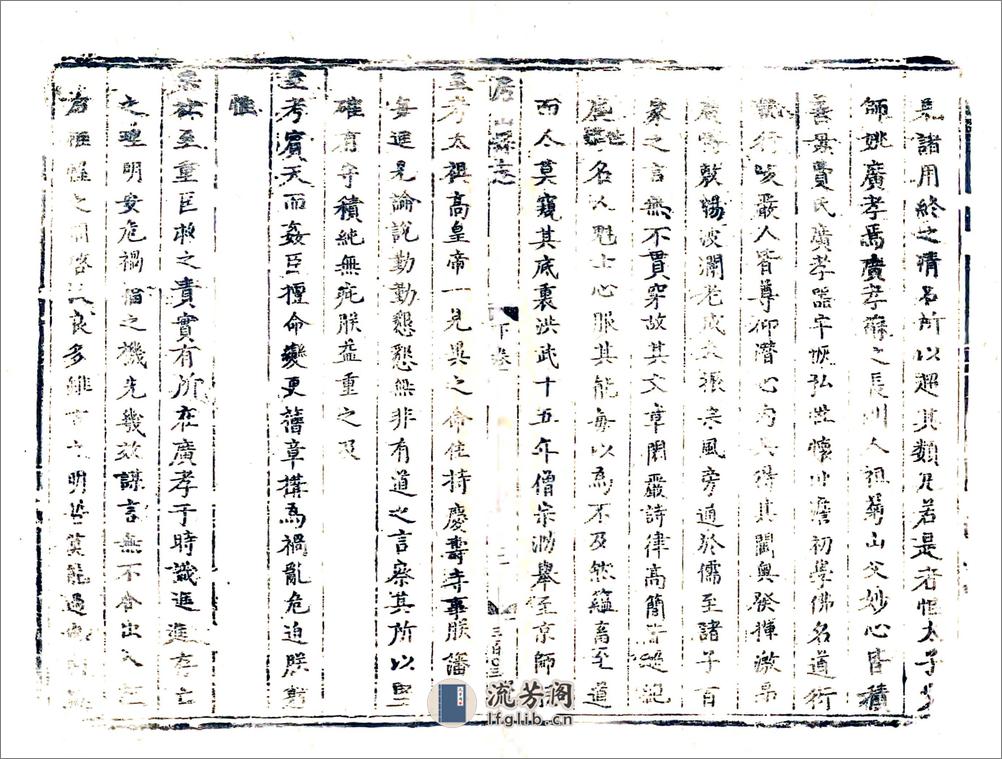 諸用終之情名所以超其類凡若是者惟太子少
師姚廣孝焉廣孝蘇之長洲人祖菊山父妙心皆積
善母費氏廣孝器宇恢弘性懷沖澹初學佛名道衍
行峻嚴人皆尊仰潛心內典得其閫奧發揮激昂
敷暢波瀾老成大振宗風旁通於儒至諸子百
家之言無不貫穿故其文章閎嚴詩律高簡皆超絕
塵世名人魁士心服其能每以為不及然蘊畜至道
而人莫窺其底裏洪武十五年僧宗泐舉至京師
房山縣志
下卷
三百〇三
皇考太祖高皇帝一見異之命住持慶壽寺事朕藩
每進見論說勤勤懇懇無非有道之言察其所以堅
確有守積純無疵朕益重之及
皇考賓天而姦臣擅命變更舊章搆為禍亂危迫朕躬
惟
宗社至重匡救之責實有所在廣孝于時識進退存亡
之理明安危禍福之機先幾效謀言無不合出入左
右帷幄之間啓沃良多
流芳阁
lfglib.cn